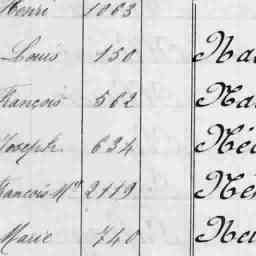 Henri 1063
Louis 150 Na
François 562 Na
Joseph 634 Né
François Mie 2119 Né
Marie 740 Ne